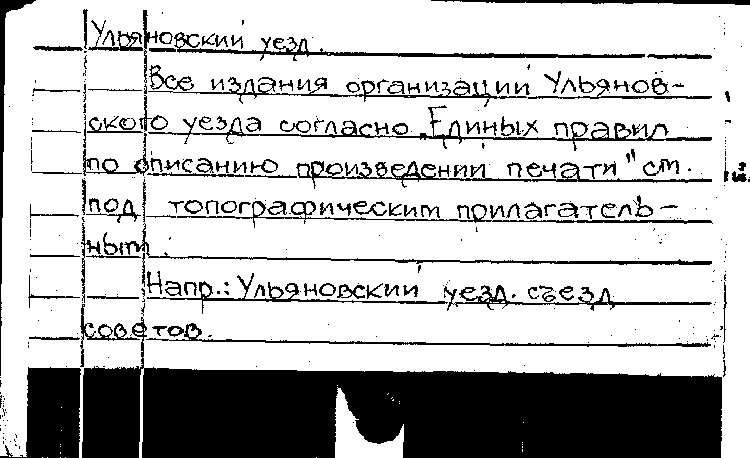 Ульяновский уезд.
Все издания организаций Ульянов-
ского уезда согласно „Единых правил
по описанию произведений печати" см.
под топографическим прилагатель-
ным.
Напр.: Ульяновский уезд. съезд
советов.